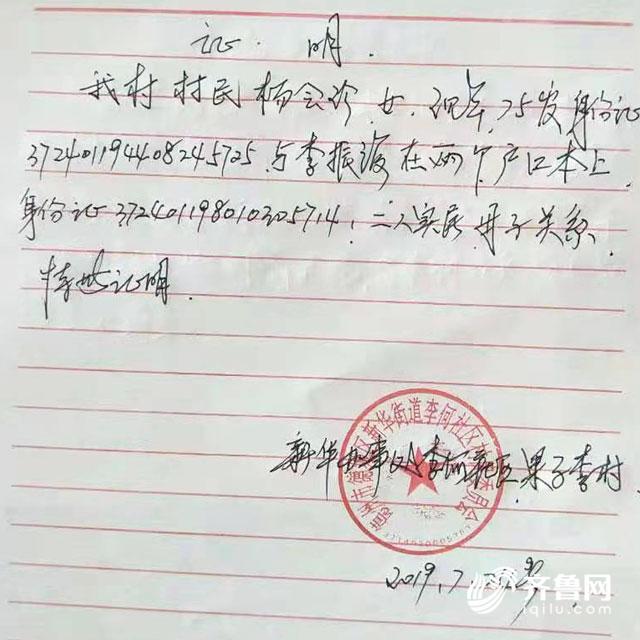 证明.
我村村民杨会诊,女.现年,75岁身份证
372401194408245725与李振海在两个户口本上.
身份证372401198010305714,二人实属母子关系.
特此证明.
新华街道李何社区
员会
新华办事处李何社区果子李村
2019.7.
齐鲁网
iqilu.com